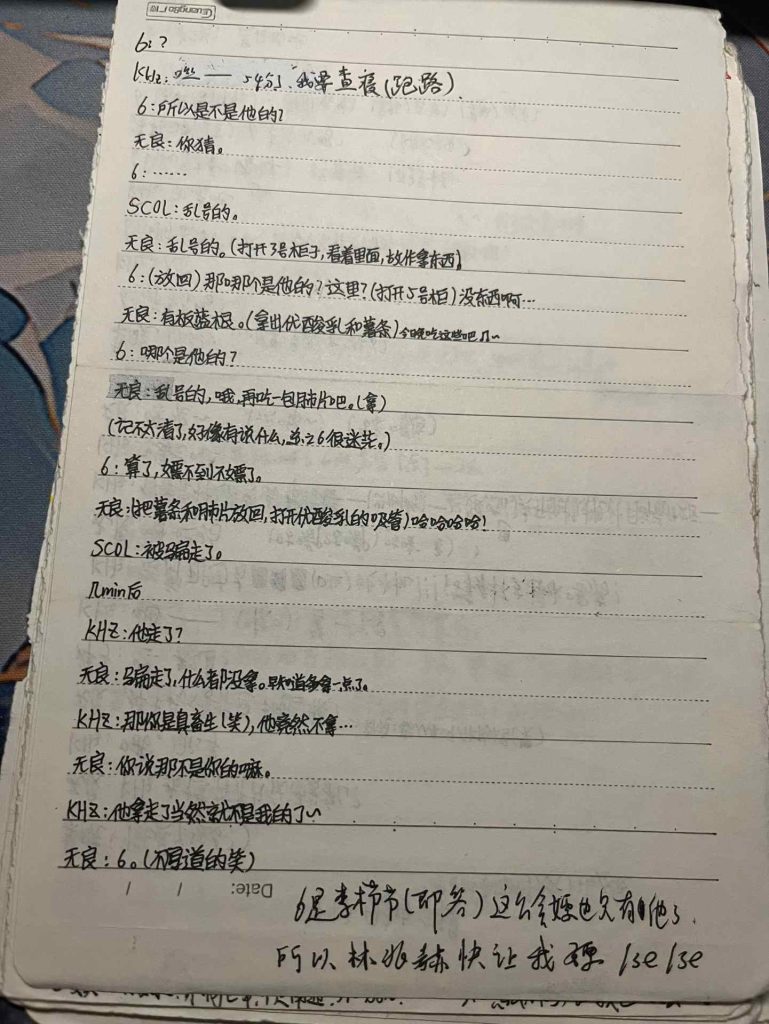 Guangbo
6:？
KHz: 嘿—— 54了,我要查寝(跑路).
6:所以是不是他的?
无良:你猜。
6:……
SCOL:乱号的。
无良:乱号的。(打开3号柜子,看着里面,故作拿东西)
6:(放回)那哪个是他的?这里?(打开5号柜)没东西啊…
无良:有板蓝根。(拿出优酸乳和薯条)今晚吃这些吧几~
6:哪个是他的?
无良:乱号的,哦,再吃一包肺片吧。(拿)
(记不太清了,好像有说什么,总之6很迷茫。)
6:算了,嫖不到不嫖了。
无良:(把薯条和肺片放回,打开优酸乳的吸管)哈哈哈哈!
SCOL:被骗走了。
几min后
KHZ:他走了?
无良:骗走了,什么都没拿。早知道多拿一点了。
KHZ:那你是真畜生(笑),他竟然不拿…
无良:你说那不是你的嘛。
KHZ:他拿走了当然就不是我的了~
无良:6。(不厚道的笑)
Date: / /
6是李节(即答)这么会嫖也只有他了.
所以林 快让我嫖